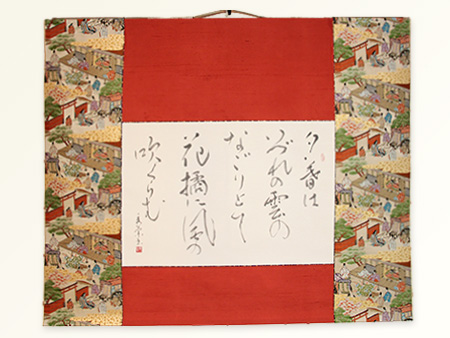 夕暮は
いづれの雲の
なごりとて
花橘に風の
吹くらむ